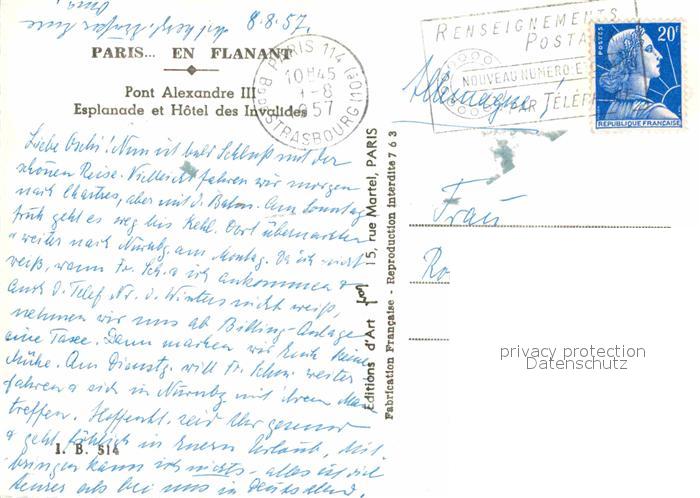 8.8.57.
PARIS... EN FLANANT
Pont Alexandre III
Esplanade et Hôtel des Invalides
Liebe Oschi! Nun ist bald Schluß mit der
schönen Reise. Vielleicht fahren wir morgen
nach Chartres, aber mit d. Bahn. Am Sonntag
früh geht es weg bis Kehl. Dort übernachten
weiter nach Nürnbg. am Montag. Da ich nicht
weiß, wann Fr. Sch. u. ich ankommen u.
auch d. Telef. Nr. v. Winters nicht weiß,
nehmen wir uns ab Billing-Anlage
eine Taxe. Dann machen wir Euch keine
Mühe. Am Dienstg. will Fr. Schw. weiter-
fahren u. sich in Nürnbg mit ihrem
treffen. Hoffentl. seid Ihr gesund
u. geht fröhlich in Euern Urlaub. Mit-
bringen kann ich nichts - alles ist viel
teurer als bei uns in Deutschland.
I. B. 514
Editions d'Art 15, rue Martel, PARIS
Fabrication Française - Reproduction interdite 763
PARIS 114
10H45
1-8
1957
Bd DE STRASBOURG (10E)
RENSEIGNEMENTS
POSTA
NOUVEAU NUMERO
PAR TÉLÉP
POSTES
20F
REPUBLIQUE FRANÇAISE
Allemagne!
Frau
Ro
privacy protection
Datenschutz